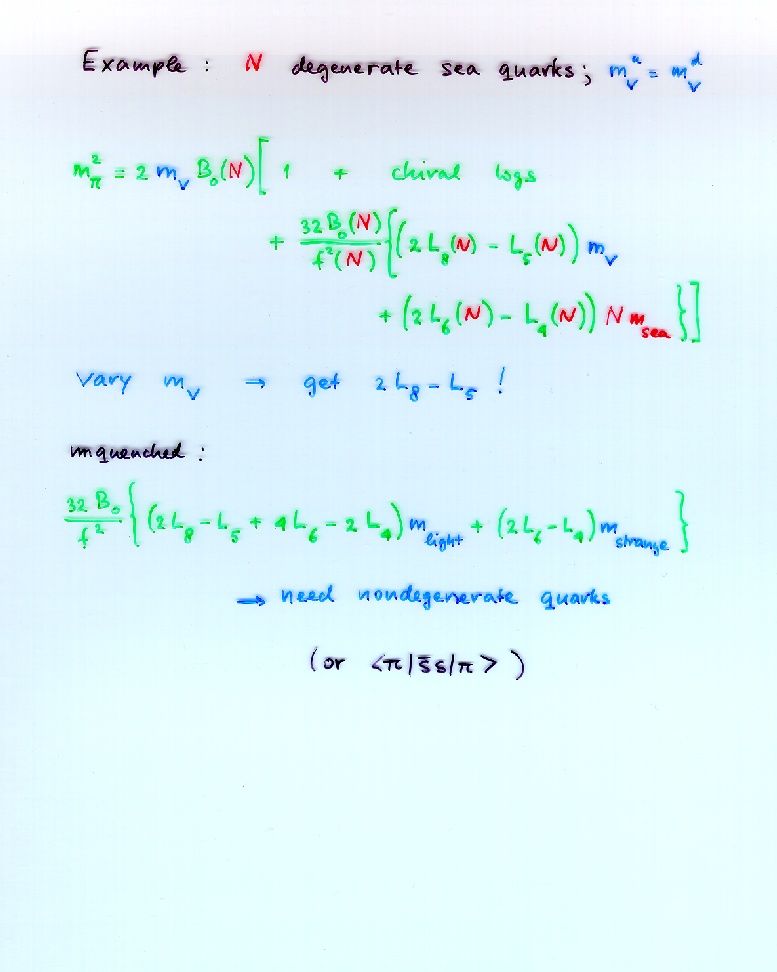 Example : N degenerate sea quarks; m_v^u = m_v^d
m_π^2 = 2 m_v B_0(N) [ 1 + chiral logs
+ 32 B_0(N) / f^2(N) { (2 L_8(N) - L_5(N)) m_v
+ (2 L_6(N) - L_4(N)) N m_sea } ]
vary m_v → get 2 L_8 - L_5 !
unquenched :
32 B_0 / f^2 { (2 L_8 - L_5 + 4 L_6 - 2 L_4) m_light + (2 L_6 - L_4) m_strange }
→ need nondegenerate quarks
(or <π|s̄s|π>)